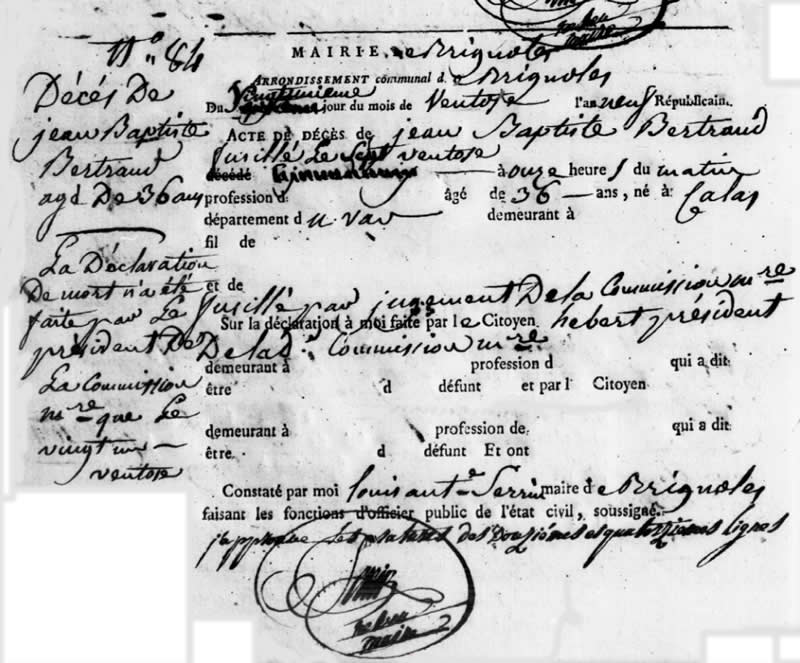 N° 84
Décés De
jean Baptiste
Bertrand
agé De 36 ans
La Déclaration
De mort n'a été
faite par Le
président De
La Commission
m.re que Le
vingt un
ventose
MAIRIE de Brignoles
ARRONDISSEMENT communal d e Brignoles
Du vingtunieme jour du mois de Ventose l'an neuf Républicain.
ACTE DE DÉCÈS de jean Baptiste Bertrand
fusillé Le Sept ventose
décédé à onze heures du matin
profession d âgé de 36 ans, né à Calas
département d u var demeurant à
fil de
et de
fusillé par jugement De la Commission m.re
Sur la déclaration à moi faite par le Citoyen hebert président
De lad. Commission m.re
demeurant à profession d qui a dit
être d défunt et par l Citoyen
demeurant à profession de qui a dit
être. d défunt Et ont
Constaté par moi louis ant.e Serrin maire d e Brignoles
faisant les fonctions d'officier public de l'état civil, soussigné.
japprouve les ratures des Douziémes et quatorziémes lignes
maire